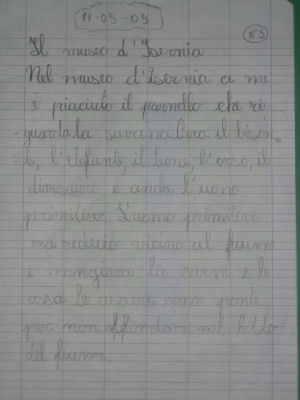 17-05-05
N°3
Il museo d'Isernia
Nel museo d'Isernia a me
è piaciuto il pannello che ri-
guarda la savana. C'era il bison-
te, l'elefante, il leone, l'orso, il
dinosauro e anche l'uomo
primitivo. L'uomo primitivo
era seduto vicino al fiume
e mangiava la carne e le
ossa le usava come ponte
per non affondare nel letto
del fiume.